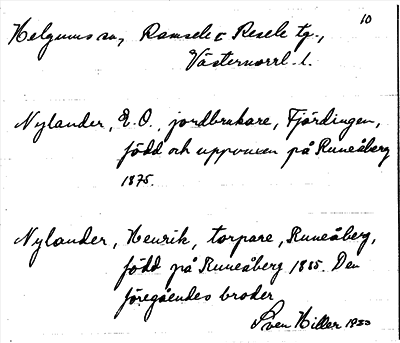 10
Helgums sn, Ramsele o Resele tg.,
Västernorrl. l.
Nylander, E. O., jordbrukare, Fjärdingen,
född och uppvuxen på Runeåberg
1875.
Nylander, Henrik, torpare, Runeåberg,
född på Runeåberg 1885. Den
föregåendes broder
Sven Hiller 1933